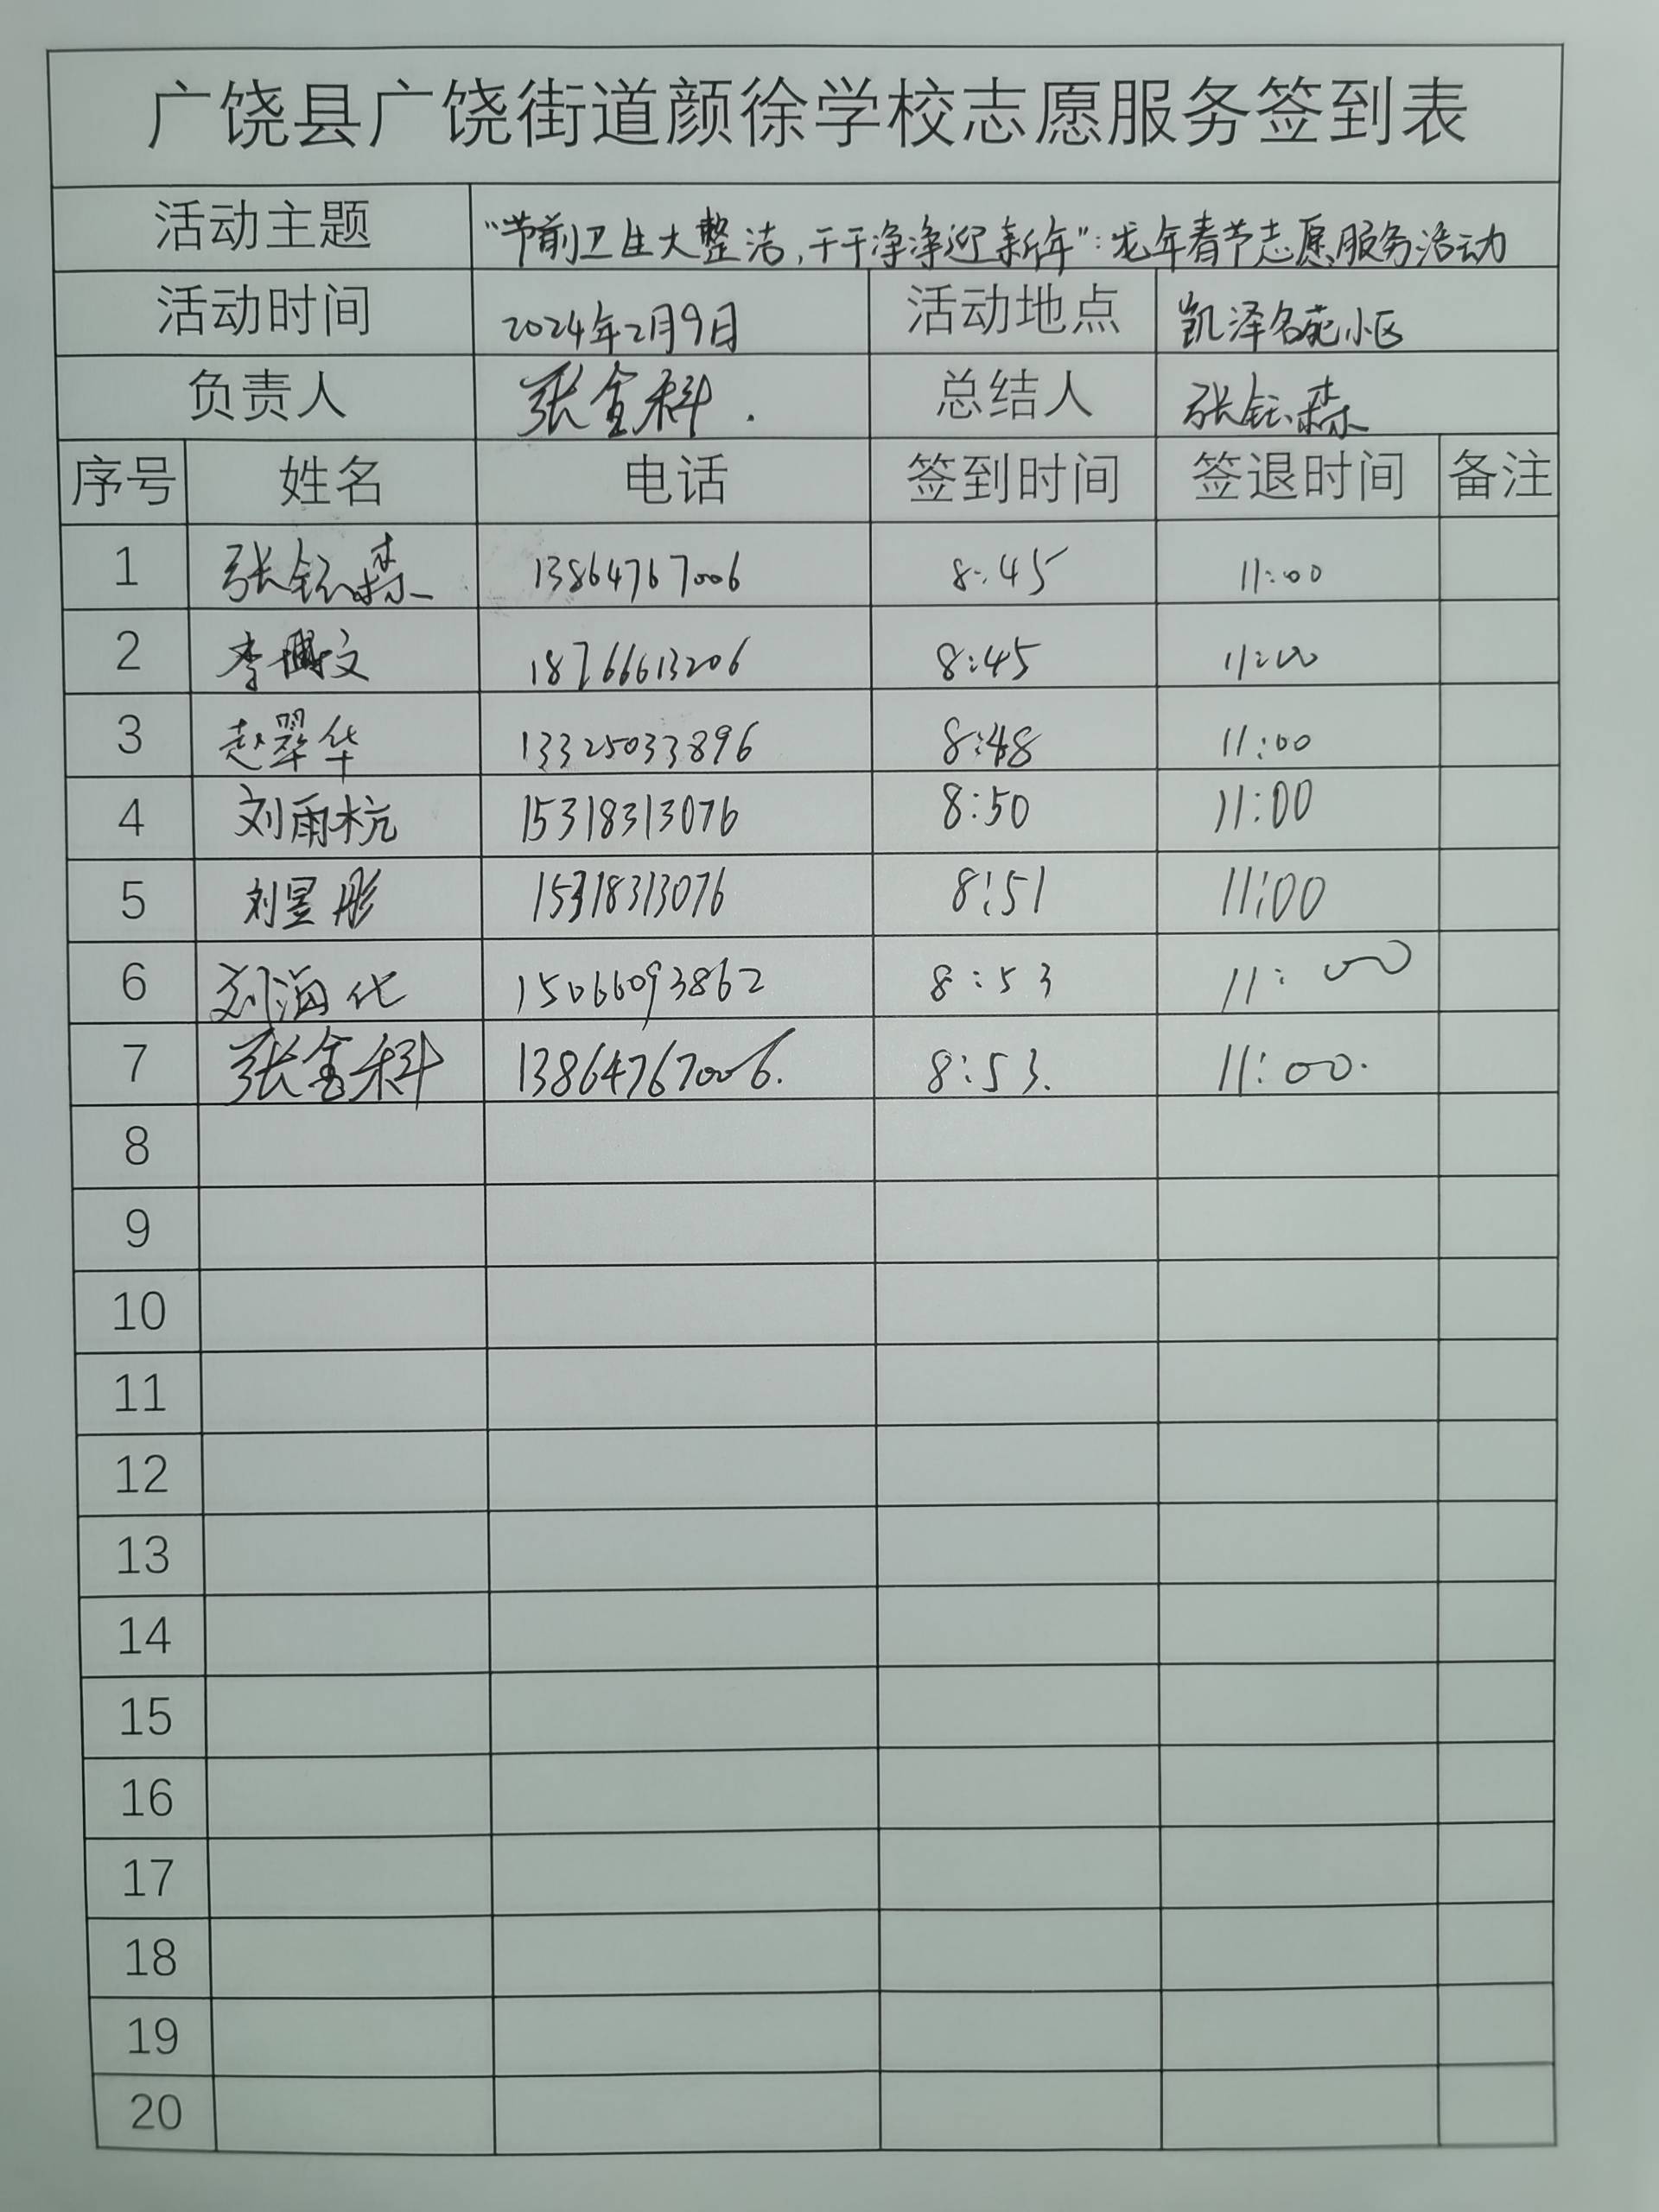 广饶县广饶街道颜徐学校志愿服务签到表
活动主题 "节前卫生大整洁，干干净净迎新年"：龙年春节志愿服务活动
活动时间 2024年2月9日 活动地点 凯泽名苑小区
负责人 张金科. 总结人 张钰森
序号 姓名 电话 签到时间 签退时间 备注
1 张钰森 13864767006 8:45 11:00
2 李博文 18766613206 8:45 11:00
3 赵翠华 13325033896 8:48 11:00
4 刘雨杭 15318313076 8:50 11:00
5 刘昱彤 15318313076 8:51 11:00
6 刘海化 15066093862 8:53 11:00
7 张金科 13864767006. 8:53. 11:00.
8
9
10
11
12
13
14
15
16
17
18
19
20